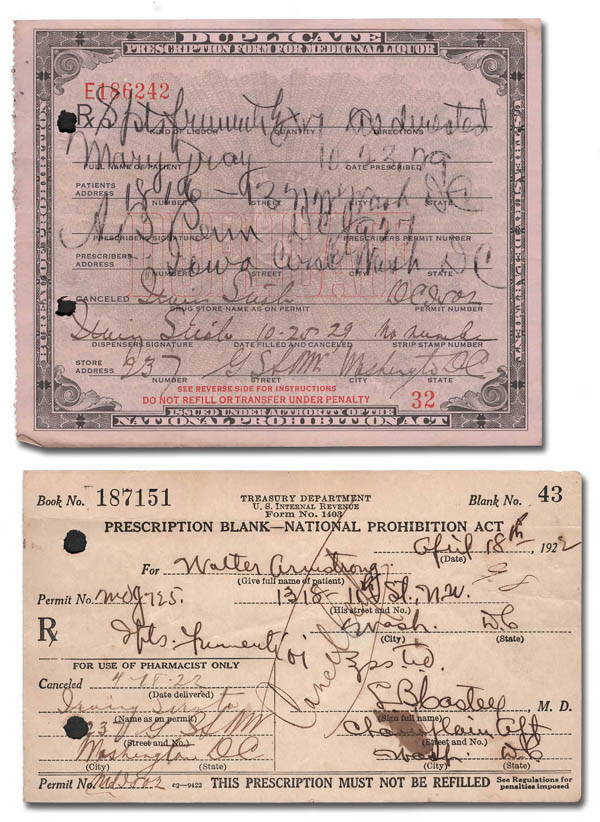 DUPLICATE
PRESCRIPTION FORM FOR MEDICINAL LIQUOR
E186242
Rx Spt frumenti Xvi As directed
KIND OF LIQUOR QUANTITY DIRECTIONS
Mary Gray 10-23-29
FULL NAME OF PATIENT DATE PRESCRIBED
PATIENTS ADDRESS NW Wash DC
NUMBER STREET CITY STATE
DC J927
PRESCRIBERS SIGNATURE PRESCRIBERS PERMIT NUMBER
PRESCRIBERS ADDRESS Iowa Wash DC
NUMBER STREET CITY STATE
CANCELED
DRUG STORE NAME AS ON PERMIT PERMIT NUMBER
10-25-29 no number
DISPENSERS SIGNATURE DATE FILLED AND CANCELED STRIP STAMP NUMBER
STORE ADDRESS 237 G St NW Washington DC
NUMBER STREET CITY STATE
SEE REVERSE SIDE FOR INSTRUCTIONS
DO NOT REFILL OR TRANSFER UNDER PENALTY 32
ISSUED UNDER AUTHORITY OF THE
NATIONAL PROHIBITION ACT
Book No. 187151 TREASURY DEPARTMENT Blank No. 43
U. S. INTERNAL REVENUE
Form No. 1403
PRESCRIPTION BLANK—NATIONAL PROHIBITION ACT
April 18th, 1922
(Date)
For Walter Armstrong
(Give full name of patient)
Permit No. 1318-10th St., N.W.
(His street and No.)
Wash. DC
(City) (State)
Rx Spts. Frumenti
FOR USE OF PHARMACIST ONLY
Canceled 4-18-22
(Date delivered)
Canceled
M. D.
(Name as on permit) (Sign full name)
237 G St NW Champlain
(Street and No.) (Street and No.)
Washington DC Wash. DC
(City) (State) (City) (State)
Permit No. c2—9422 THIS PRESCRIPTION MUST NOT BE REFILLED See Regulations for penalties imposed